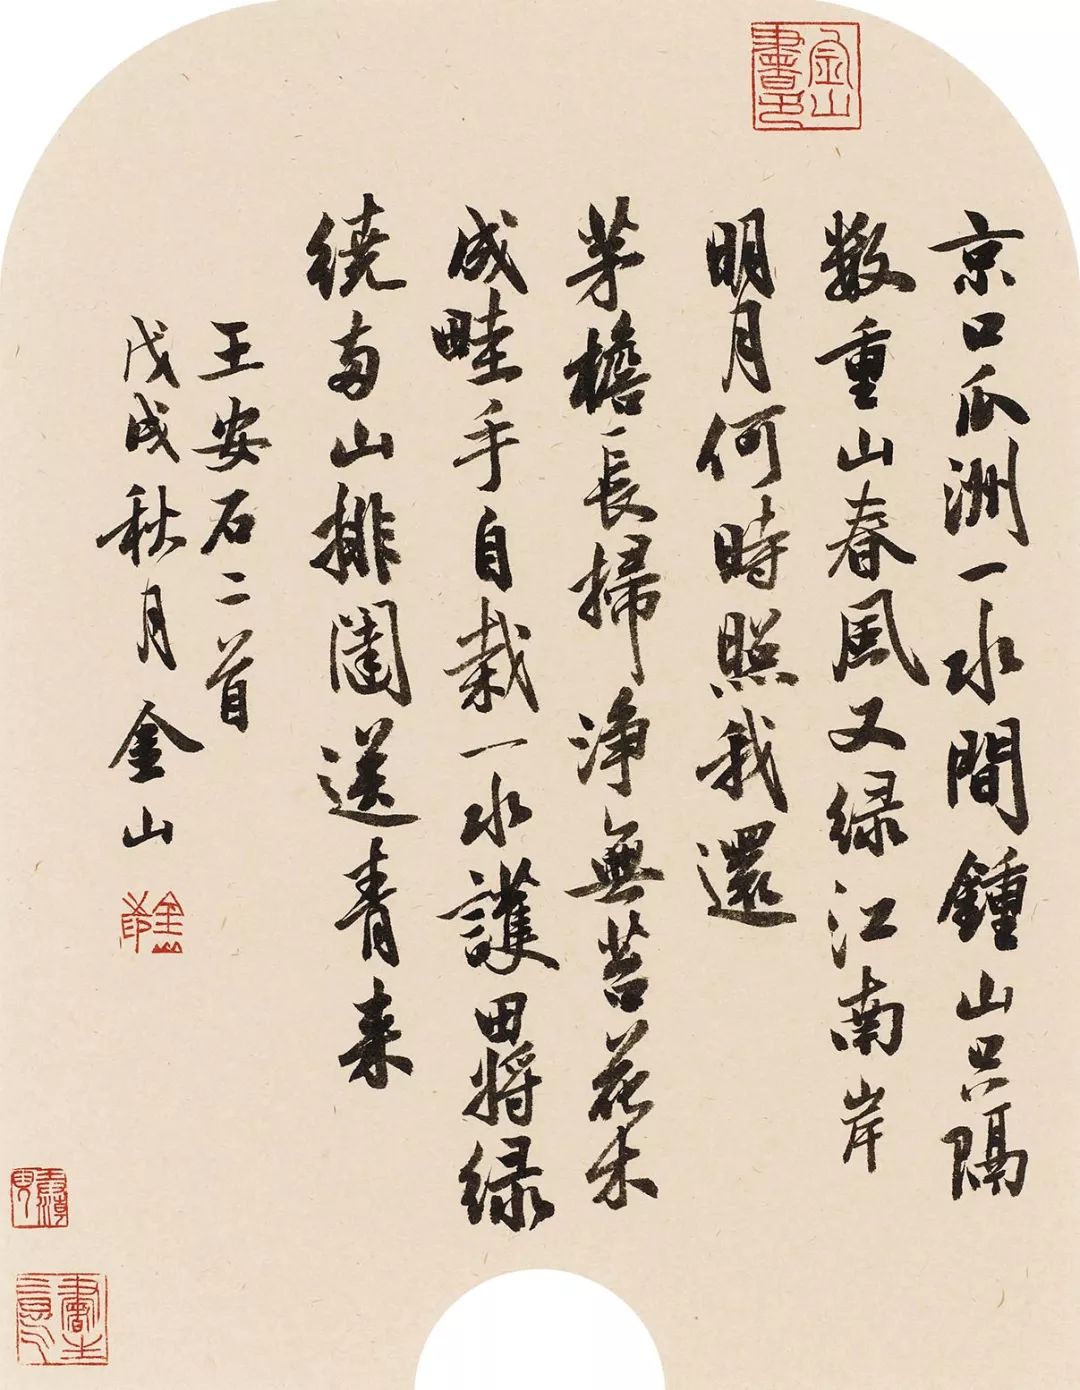 金山書印
京口瓜洲一水間鍾山只隔
數重山春風又緑江南岸
明月何時照我還
茅檐長掃浄無苔花木
成畦手自栽一水護田將緑
繞両山排闥送青来
王安石二首
戊戌秋月金山